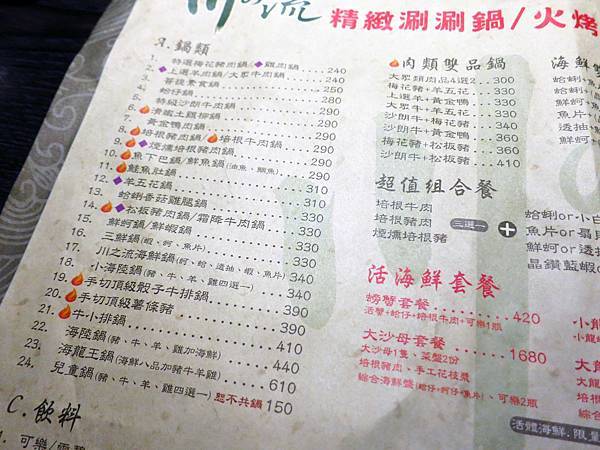 川の流
精緻涮涮鍋/火烤
A.鍋類
1. 特選梅花豬肉鍋/雞肉鍋....240
2. 上選羊肉鍋/大眾牛肉鍋....240
3. 菩提素食鍋....250
4. 蛤仔鍋....280
5. 特級沙朗牛肉鍋....290
6. 清嫩土雞柳鍋....290
7. 黃金鴨肉鍋....290
8. 培根豬肉鍋/培根牛肉鍋....290
9. 煙燻培根豬肉鍋....290
10. 魚下巴鍋/鮮魚鍋(油魚、鯛魚)....290
11. 鮭魚肚鍋....310
12. 羊五花鍋....310
13. 蛤蜊香菇雞腿鍋....330
14. 松板豬肉鍋/霜降牛肉鍋....330
15. 鮮蚵鍋/鮮蝦鍋....330
16. 三鮮鍋(蝦、蚵、魚片)....330
17. 川之流海鮮鍋(蚵、蛤、透抽、蝦、魚片)....340
18. 小海陸鍋(豬、牛、羊、雞四選一)....340
19. 手切頂級骰子牛排鍋....390
20. 手切頂級薯條豬....390
21. 牛小排鍋....390
22. 海陸鍋(豬、牛、羊、雞加海鮮)....440
23. 海龍王鍋(海鮮八品加豬牛羊雞)....610
24. 兒童鍋(豬、牛、羊、雞四選一)恕不共鍋150
C.飲料
1. 可樂/雪碧
肉類雙品鍋
大眾類肉品4選2..330
梅花豬+羊五花....330
上選羊+黃金鴨....330
大眾牛+羊五花....330
沙朗牛+梅花豬....330
沙朗牛+黃金鴨....360
梅花豬+松板豬....360
沙朗牛+松板豬....410
超值組合餐
培根牛肉
培根豬肉
煙燻培根豬
三選一
+
活海鮮套餐
螃蟹套餐....420
活蟹+蛤仔+培根牛肉+可樂1瓶
大沙母套餐....1680
大沙母1隻、菜盤2份
培根豬肉、手工花枝漿
綜合海鮮盤(蛤仔+蚵仔+魚片)、可樂2瓶
海鮮雙
蛤蜊+
蛤蜊+
鮮蚵+
魚片+
透抽+
鮮蚵+
蛤蜊or小白
魚片or扇貝
鮮蚵or透抽
晶鑽藍蝦o
小龍
小龍蝦
大龍
大龍
培根
綜合
活體海鮮.限量